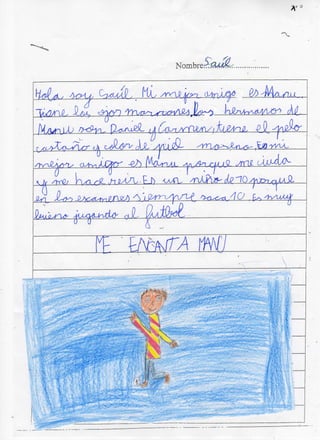 Nombre: Saúl
Hola soy Saúl. Mi mejor amigo es Manu
Tiene los ojos marrones, los hermanos de
Manu son Daniel y Carmen, tiene el pelo
castaño y color de piel morena. Es mi
mejor amigo es Manu porque me cuida
y me hace reir. Es un niño de 10 porque
en los examenes siempre saca 10. Es muy
bueno jugando al futbol
ME ENCANTA MANU